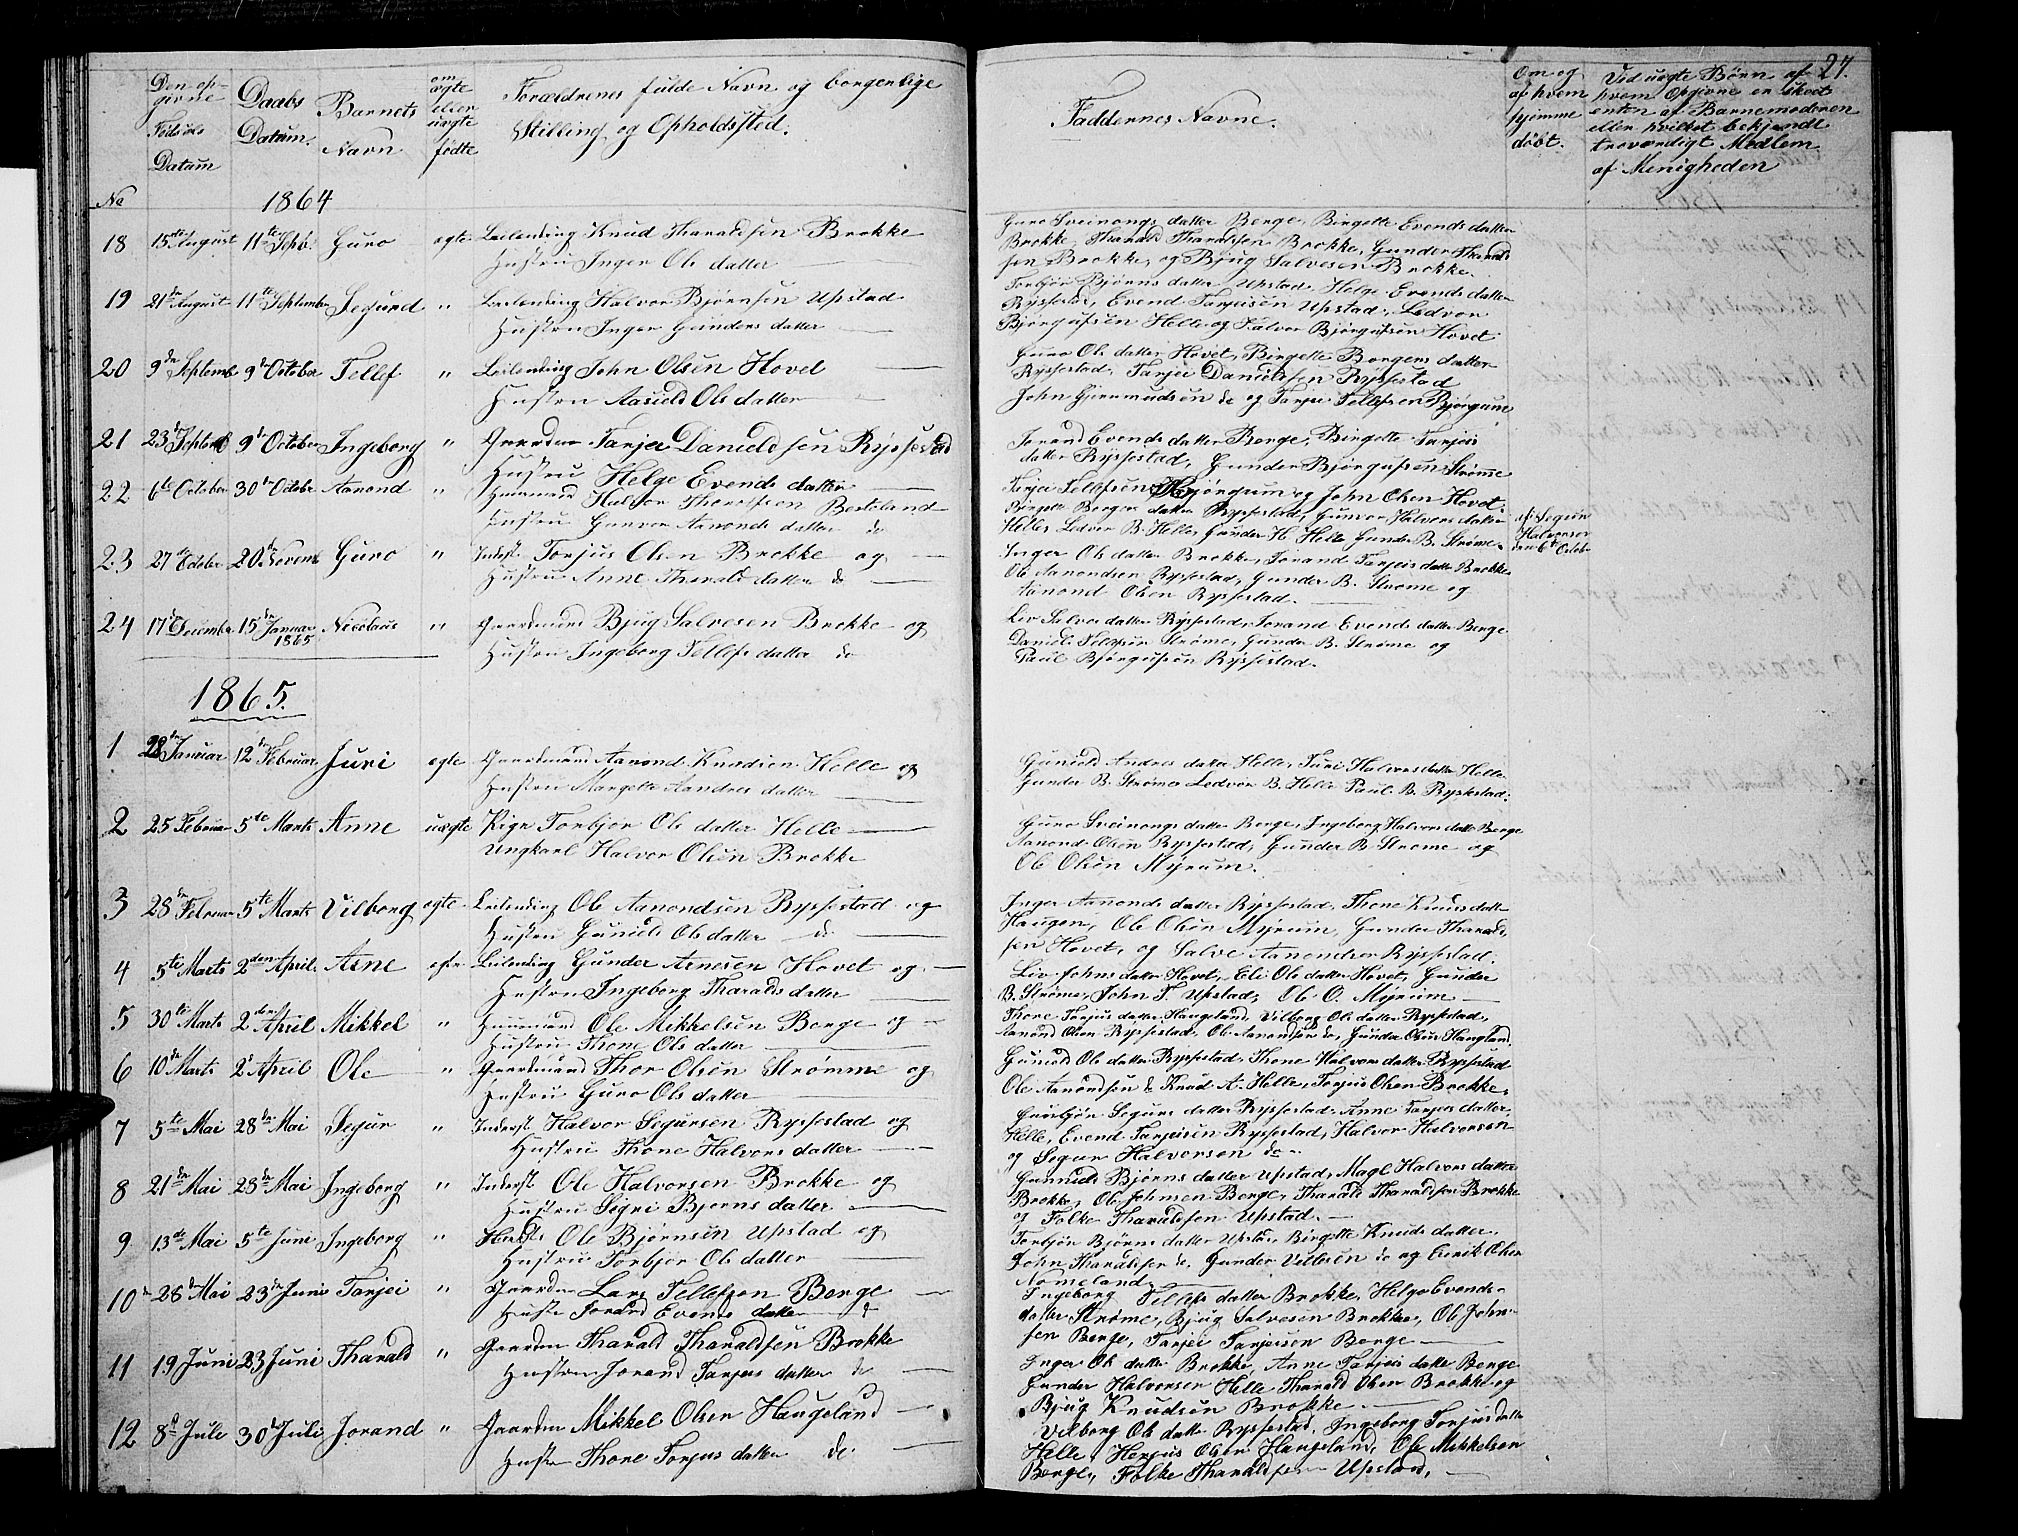 27.
Den op-
givne
Fødsels
Datum
Daabs
Datum.
Barnets
Navn
om
ægte
eller
uægte
fødte
Forældrenes fulde Navn og borgerlige
Stilling og Opholdssted.
Faddernes Navne.
Om og
af hvem
hjemme
døbt.
Ved uægte Børn af
hvem Opgivne er skeet
enten af Barnemoderen
eller hvilket bekjendt
troværdigt Medlem
af Menigheden
No
1864
18 15de August 11te Septbr Guro ægte Leilending Knud Tharaldsen Brokke
Hustru Inger Ols datter
Guro Sveinongs datter Berge, Birgette Evends datter
Brokke, Tharald Tharaldsen Brokke, Gunder Tharald
sen Brokke, og Bjug Salvesen Brokke.
19 21de August 11te September Segund " Leilending Halvor Bjørnsen Upstad
Hustru Inger Gunders datter
Torbjør Bjørns datter Upstad, Helge Evends datter
Rysstad, Evend Tarjeisen Upstad, Ledvor
Bjørgufsen Helle og Halvor Bjørgufsen Hovet
20 9de Septemb 9de October Tellef " Leilending John Olsen Hovet
Hustru Aasuld Ols datter
Guro Ols datter Hovet, Birgette Borgers datter
Ryssestad, Tarjei Danieldsen Ryssestad
John Gjermundsen do og Tarjei Tellefsen Bjørgum
21 23de Septemb 9de October Ingeborg " Gaardm Tarjei Danieldsen Ryssestad
Hustru Helge Evends datter
Jorand Evends datter Berge, Birgette Tarjeis
datter Ryssestad, Gunder Bjørgufsen Strømme
Tarjei Tellefsen Bjørgum og John Olsen Hovet.
22 6te October 30te Octobr Aanond " Huusmand Halvor Thorefsen Besteland
Hustru Gunvor Aanonds datter do
Birgette Borgers datter Ryssestad, Gunvor Halvors datter
Helle, Ledvor B. Helle, Gunder H. Helle Gunder B. Strøme.
af Segur
Halvorsen
den 6te Octobr
23 27de October 20de Novemb Guro " Inderst Torjus Olsen Brokke og
Hustru Anne Tharalds datter do
Inger Ols datter Brokke, Jorand Tarjeis datter Brokke
Ole Aanondsen Ryssestad, Gunder B. Strøme og
Aanond Olsen Ryssestad.
24 17de December 15de Januar 1865 Nicolaus " Gaardmand Bjug Salvesen Brokke og
Hustru Ingeborg Tellefs datter do
Liv Salves datter Ryssestad, Jorand Evends datter Berge
Daniel Tellefsen Strøme, Gunder B. Strøme og
Paul Bjørgufsen Ryssestad.
1865.
1 28de Januar 12de Februar Juri ægte Gaardmand Aanond Knudsen Helle og
Hustru Margette Aandres datter
Gunuld Andres datter Helle, Turi Halvorsdatter Helle
Gunder B. Strøme Ledvor B. Helle Paul B. Ryssestad.
2 25 Februar 5te Marts Anne uægte Pige Torbjor Ols datter Helle
Ungkarl Halvor Olsen Brokke
Guro Sveinongs datter Berge, Ingeborg Halvors datter Berge
Aanond Olsen Ryssestad, Gunder B. Strøme og
Ole Olsen Myrum.
3 28de Februar 5te Marts Vilborg ægte Leilending Ole Aanondsen Ryssestad og
Hustru Gunuld Ols datter do
Inger Aanonds datter Ryssestad, Thone Knuds datter
Haugen, Ole Olsen Myrum, Gunder Tharald,
sen Hovet, og Salve Aanondsen Ryssestad.
4 5te Marts 2den April. Arne ægte Leilending Gunder Arnesen Hovet og
Hustru Ingeborg Tharalds datter
Liv Johns datter Hovet, Eli Ols datter Hovet, Gunder
B. Strøme, John T. Upstad, Ole O. Myrum
5 30te Marts 2den April Mikkel " Huusmand Ole Mikkelsen Berge og
Hustru Thone Ols datter
Thone Torjus datter Haugeland, Vilborg Ols datter Ryssestad,
Aanond Olsen Ryssestad, Ole Aanondsen do, Gunder Olsen Haugland.
6 10de Marts 2d April Ole " Gaardmand Thor Olsen Strømme og
Hustru Guro Ols datter
Gunuld Ols datter Ryssestad, Thone Halvors datter Ryssestad
Ole Aanondsen do Knud A. Helle, Torjus Olsen Brokke.
7 5te Mai 28de Mai Segur " Inderst Halvor Segursen Ryssestad og
Hustru Thone Halvors datter
Gunbjør Segurs datter Ryssestad, Anne Tarjeis datter,
Helle, Evend Tarjeisen Ryssestad, Halvor Halvorsen
og Segur Halvorsen do
8 21de Mai 28de Mai Ingeborg " Inderst Ole Halvorsen Brokke og
Hustru Sigri Bjørns datter
Gunuld Bjørns datter Upstad, Magl Halvors datter
Brokke, Ole Johnsen Berge, Tharald Tharaldsen Brokke
og Folke Tharaldsen Upstad.
9 13de Mai 5te Juni Ingeborg " Ole Bjørnsen Upstad og
Hustru Torbjor Ols datter
Torbjør Bjørns datter Upstad, Birgette Knuds datter,
John Tharaldsen do, Gunder Villesen do og Eerik Olsen
Nomeland.
10 28de Mai 23de Juni Tarjei " Gaardm Lars Tellefsen Berge
Hustr Jorand Evends datter do
Ingeborg Tellefs datter Brokke, Helge Evends-
datter Strøme, Bjug Salvesen Brokke, Ole John-
sen Berge, Tarjei Tarjeisen Berge
11 19 Juni 23 Juni Tharald " Gaardm Tharald Tharaldsen Brokke
Hustru Jorand Tarjeis datter do
Inger Ols datter Brokke, Anne Tarjeis datter Berge
Gunder Halvorsen Helle Tharald Olsen Brokke og
Bjug Knudsen Brokke.
12 8d Juli 30d Juli Jorand " Gaardm Mikkel Olsen Haugeland
Hustr Thone Torjus datter do
Vilborg Ols datter Ryssestad, Ingeborg Torjus datter
Helle, Herjus Olsen Haugeland, Ole Mikkelsen
Berge, Folke Tharaldsen Upstad.